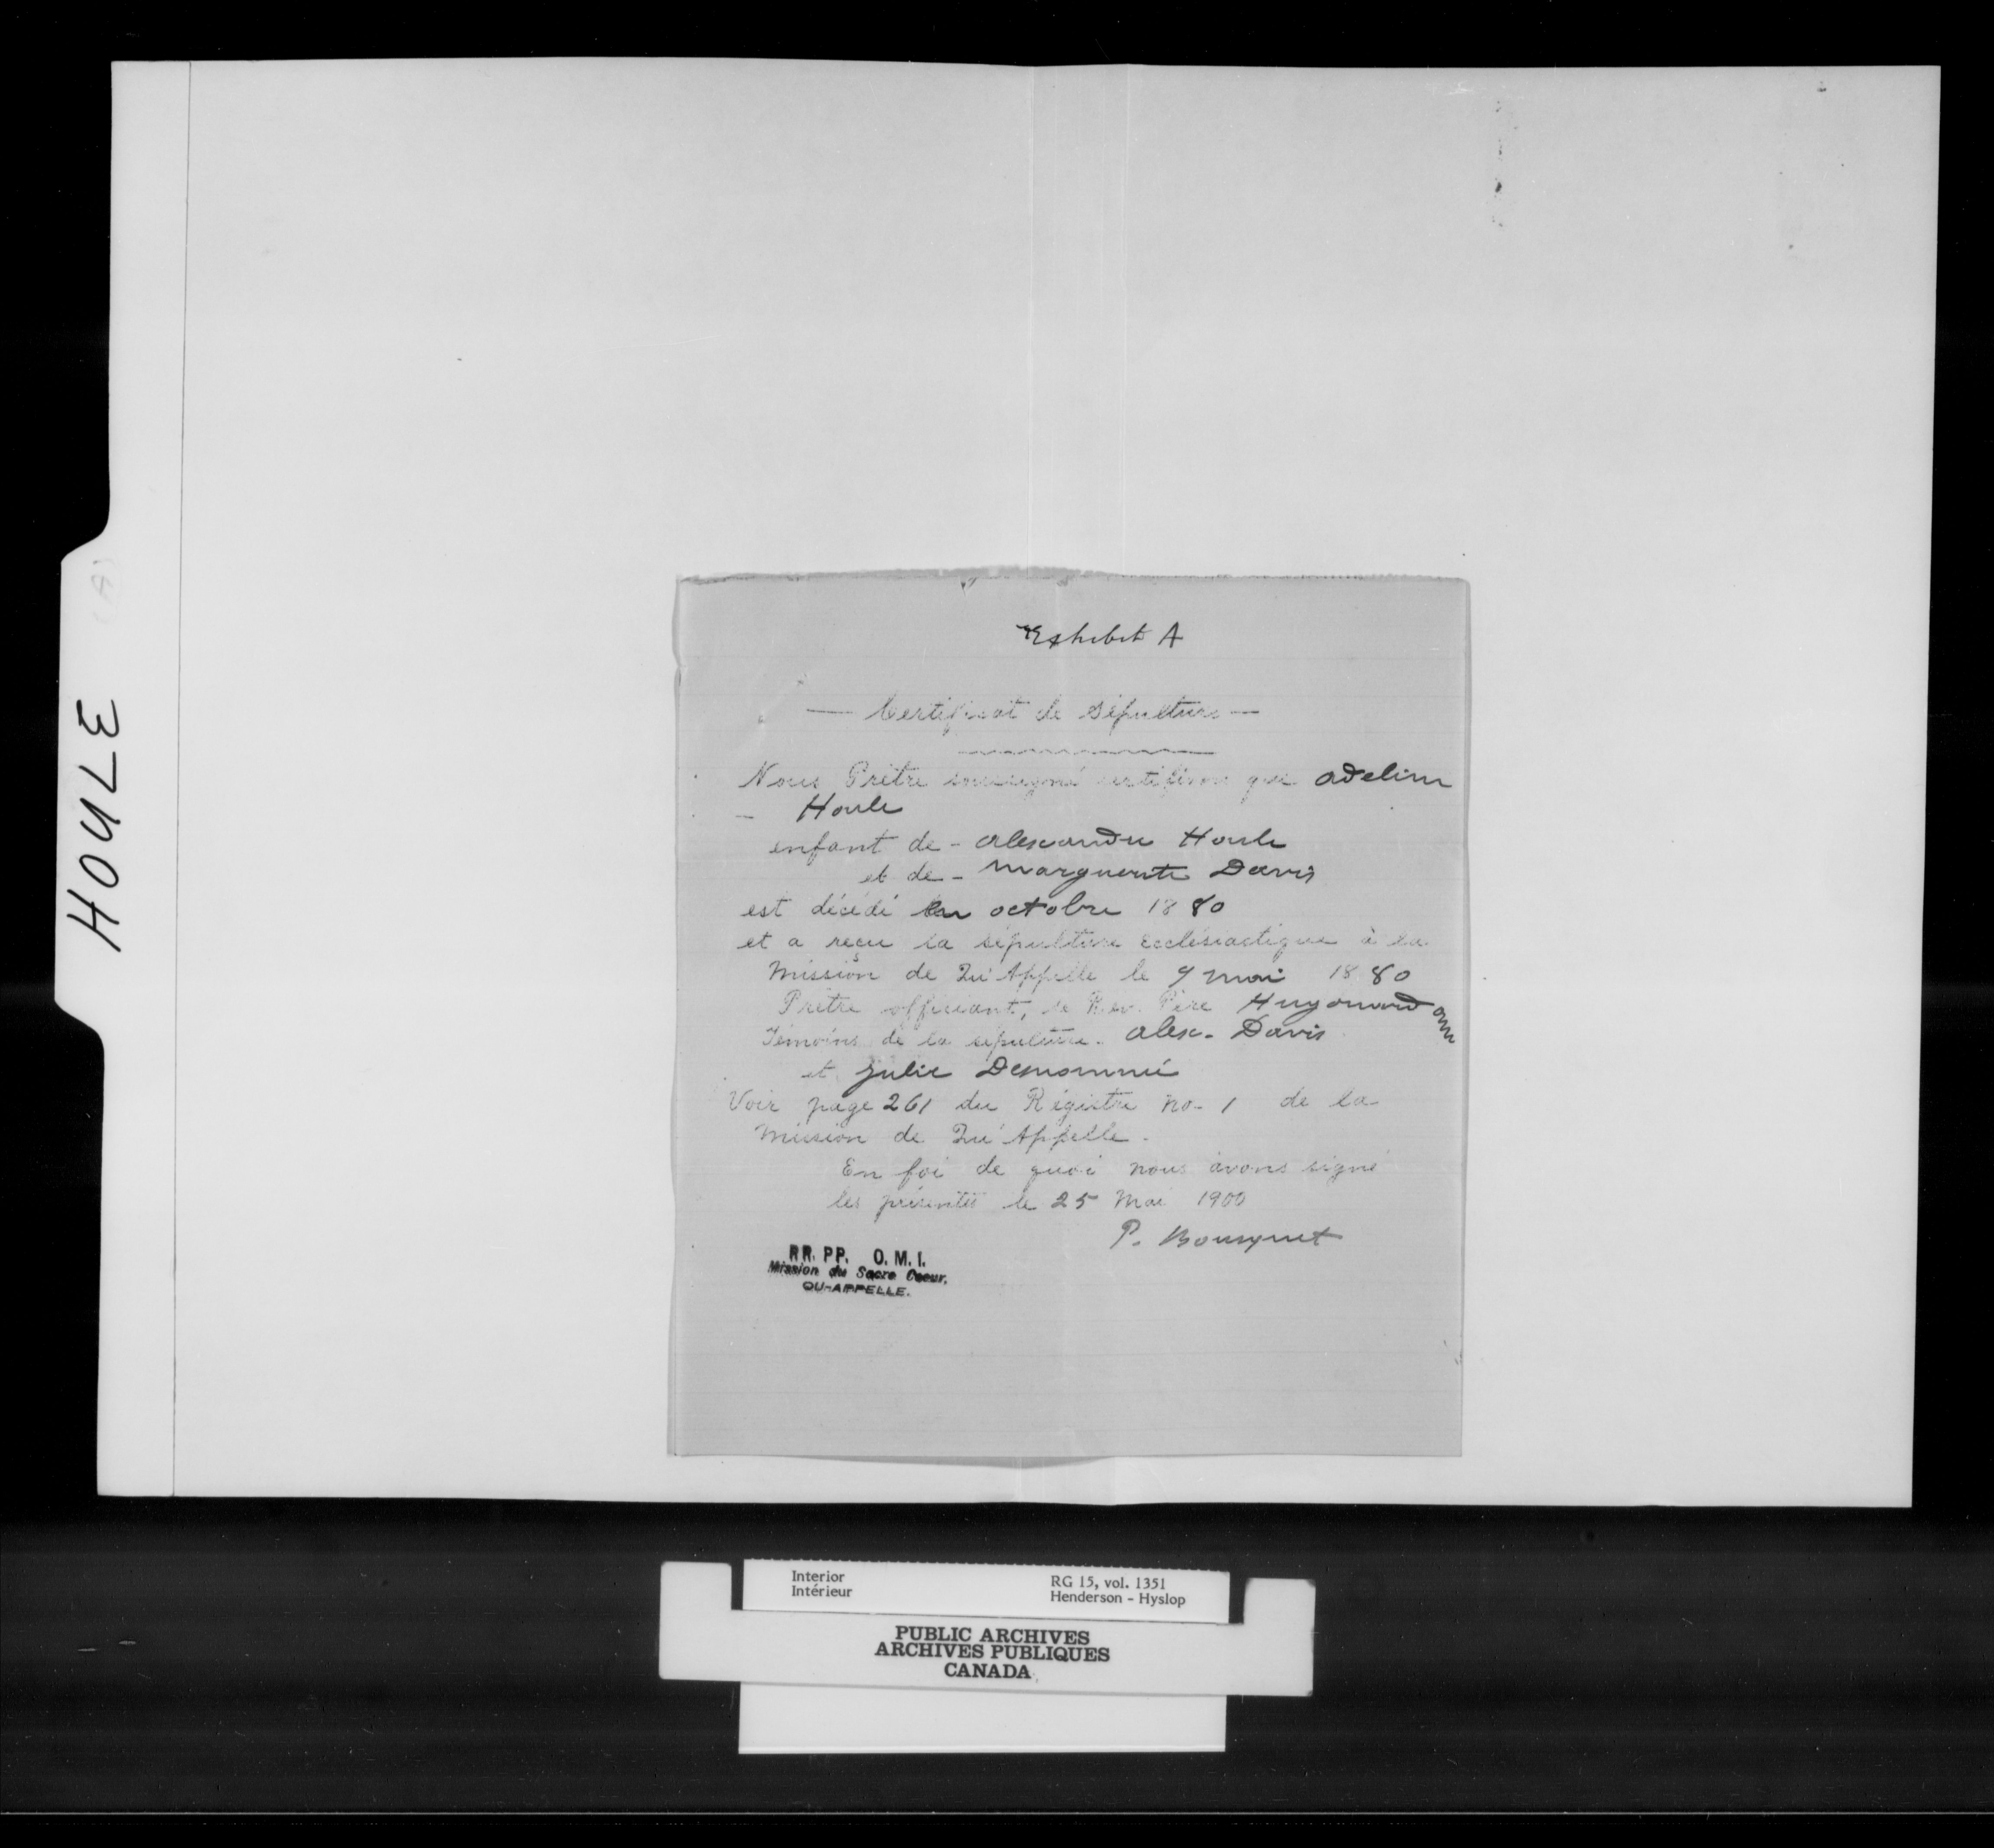 HOULE
Exhibit A
— Certificat de Sépulture —
Nous Prêtre soussigné certifions que Adeline
– Houle
enfant de - Alexandre Houle
et de - Marguerite Davis
est décédé en octobre 1880
et a reçu la sépulture Ecclésiastique à la
Mission de Qu'Appelle le 9 mai 1880
Prêtre officiant, le Rév. Père Hugonard omi
Témoins de la sépulture. Alex. Davis
et Julie Demommé
Voir page 261 du Régistre no. 1 de la
Mission de Qu'Appelle.
En foi de quoi nous avons signé
les présentes le 25 Mai 1900
P. Bousquet
RR. PP. O. M. I.
Mission du Sacre Coeur.
QU-APPELLE.
Interior
Intérieur
RG 15, vol. 1351
Henderson - Hyslop
PUBLIC ARCHIVES
ARCHIVES PUBLIQUES
CANADA